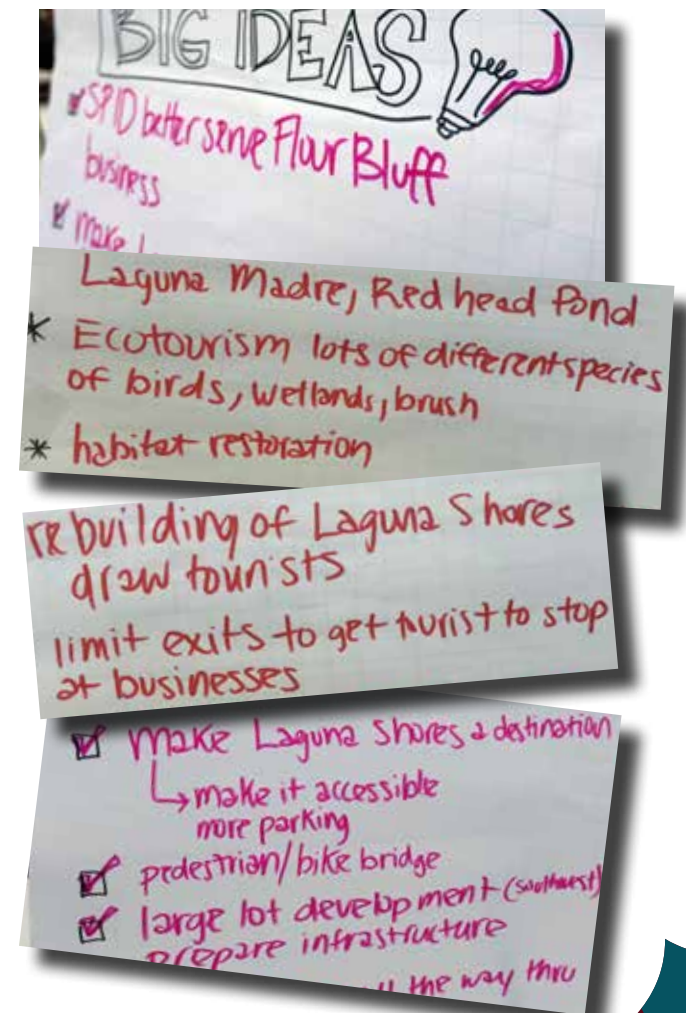 BIG IDEAS
SPID better serve Flour Bluff
business
make
Laguna Madre, Red head Pond
* Ecotourism lots of different species
of birds, wetlands, brush
* habitat restoration
rebuilding of Laguna Shores
draw tourists
limit exits to get turist to stop
at businesses
make Laguna Shores a destination
make it accessible
more parking
pedestrian/bike bridge
large lot development (southwest)
prepare infrastructure
the way thru